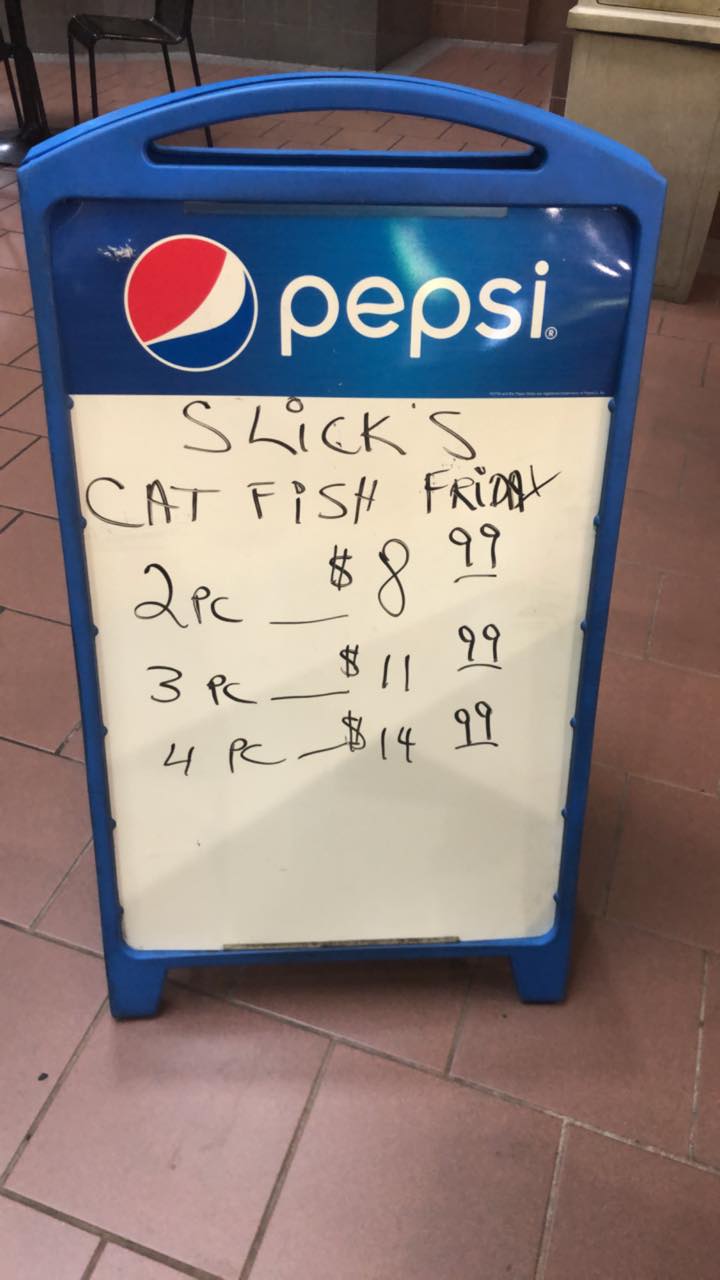 pepsi®
SLiCK'S
CAT FiSH FRiDAY
2PC __ $ 8 99
3 PC __ $ 11 99
4 PC __ $ 14 99